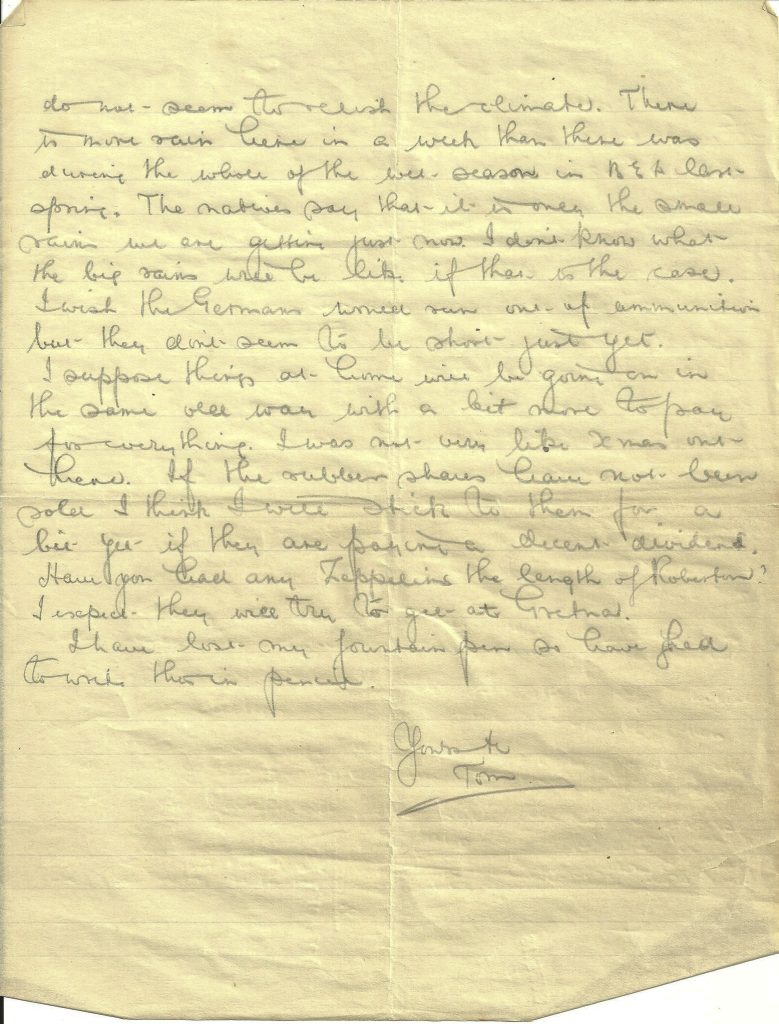 do not seem to relish the climate. There
is more rain here in a week than there was
during the whole of the wet season in B E A last
spring. The natives say that it is only the small
rains we are getting just now. I don't know what
the big rains will be like if that is the case.
I wish the Germans would run out of ammunition
but they don't seem to be short just yet.
I suppose things at home will be going on in
the same old way with a bit more to pay
for everything. I was not very like Xmas out
here. If the rubber shares have not been
sold I think I will stick to them for a
bit yet if they are paying a decent dividend.
Have you had any Zeppelins the length of Roberton?
I expect they will try to get at Gretna.
I have lost my fountain pen so have had
to write this in pencil.
Yours &c
Tom